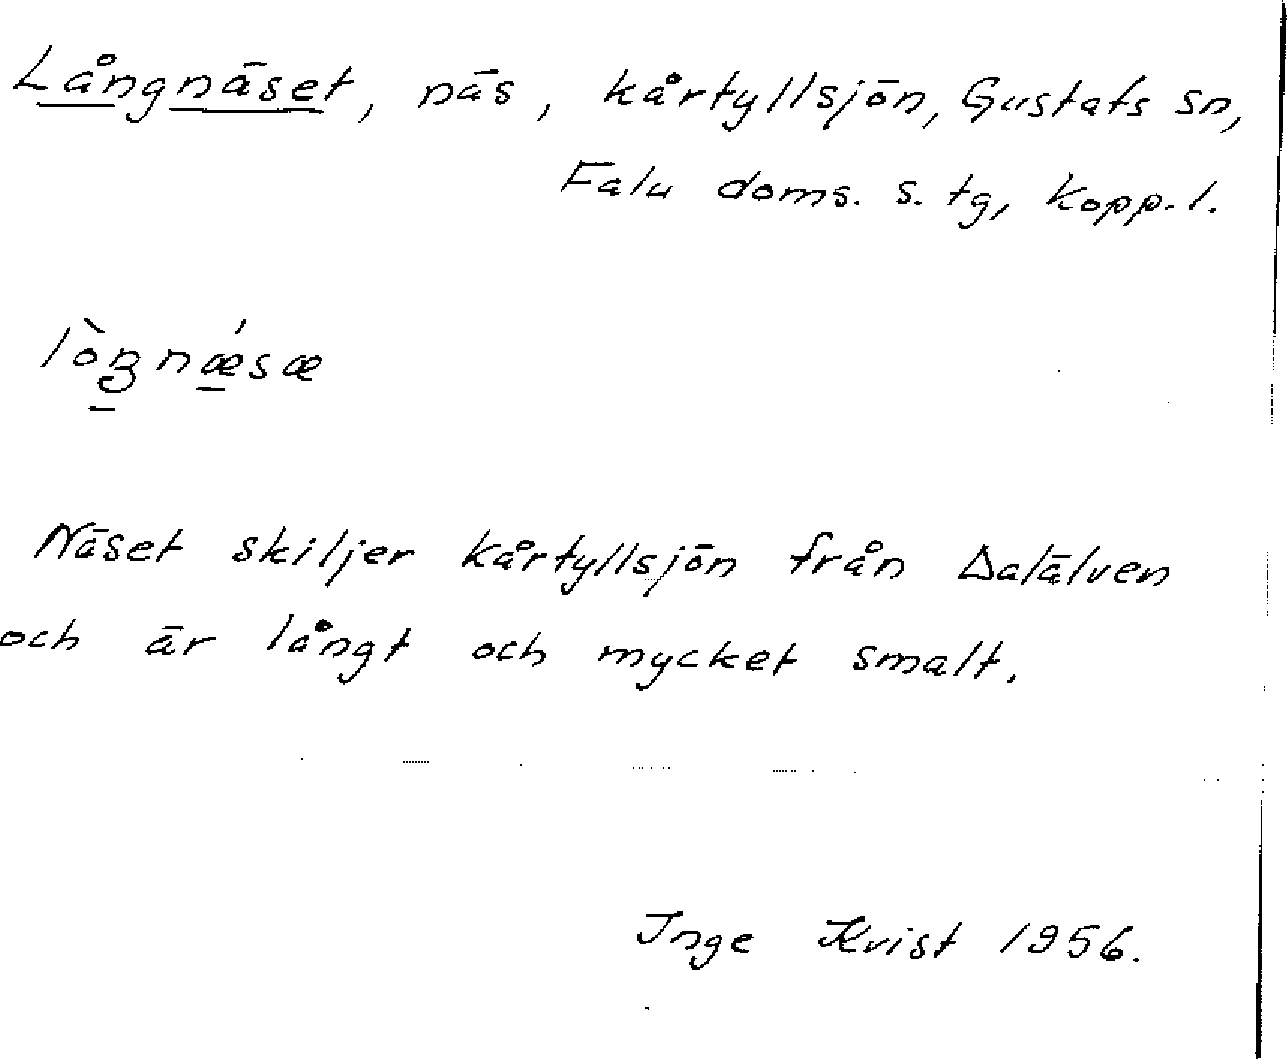 Långnäset, näs, Kårtyllsjön, Gustafs sn,
Falu doms. s. tg, Kopp. l.
Näset skiljer Kårtyllsjön från Dalälven
och är långt och mycket smalt.
Inge Kvist 1956.